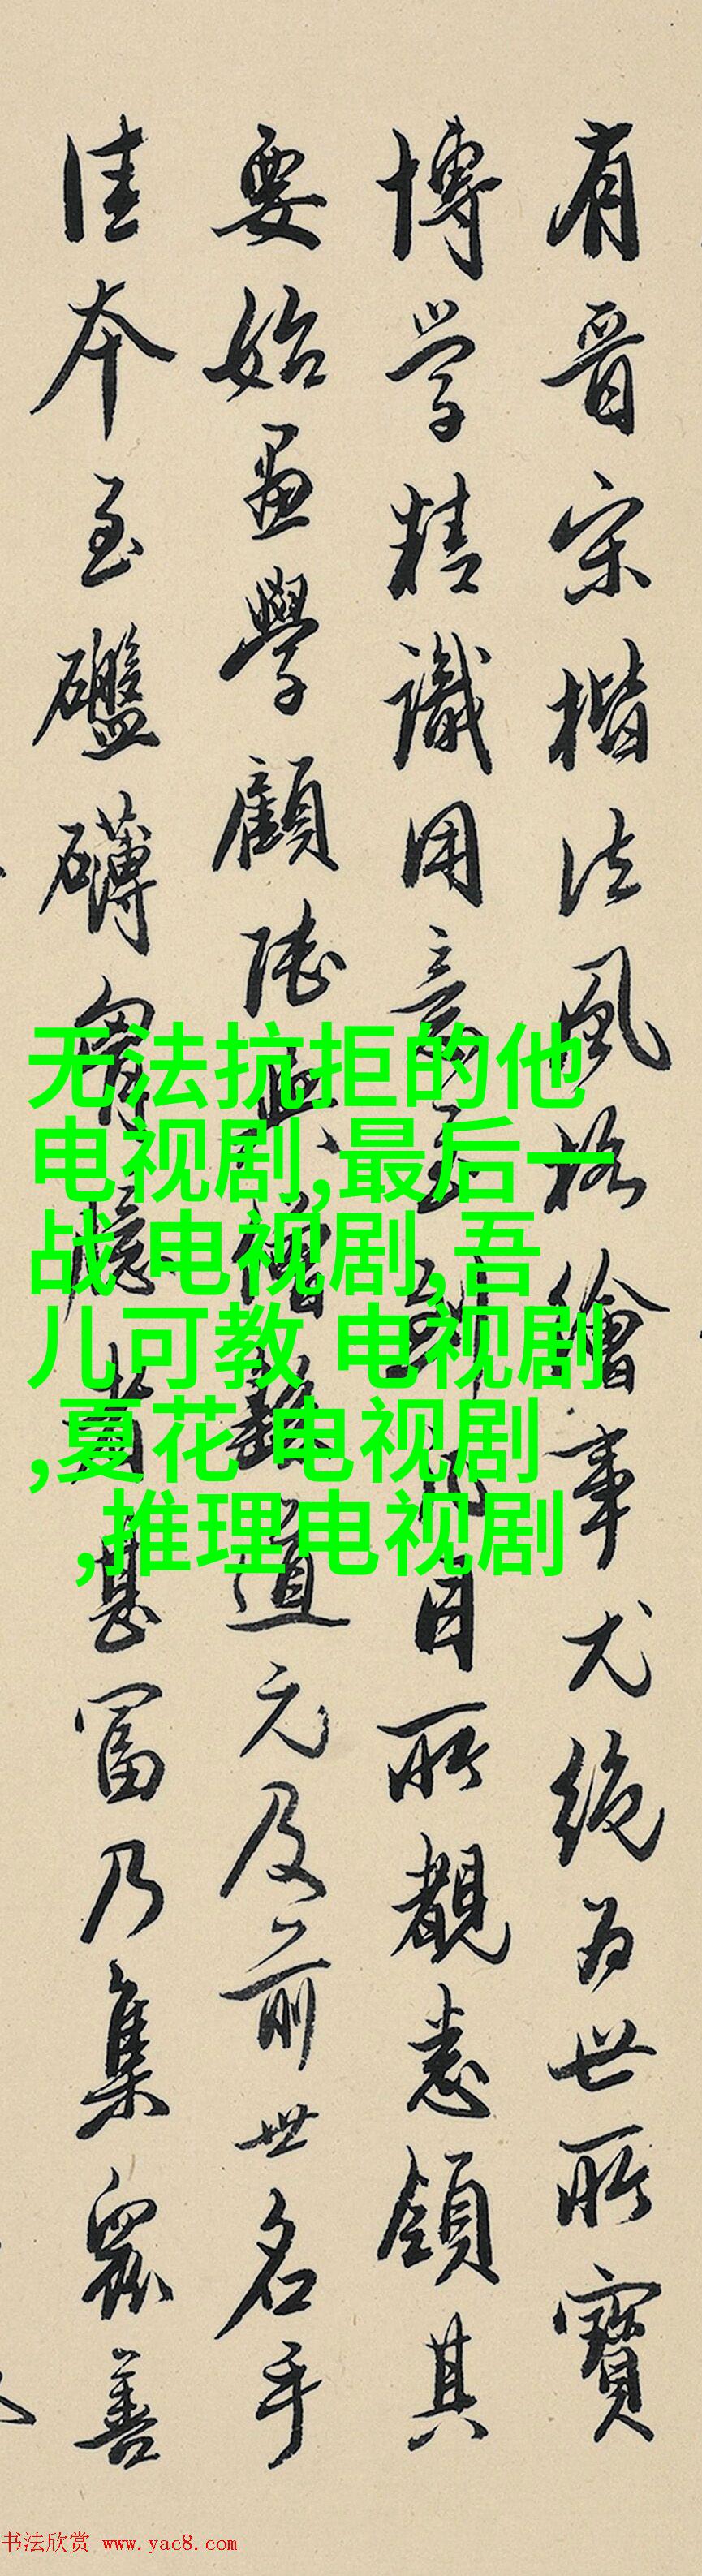 有晋宋楷法風格繪事尤絶為世所寶
博学精識用意至到凡目所覩悉領其
要始畫學顧陸與僧繇道元及前世名手
佳本至礷礴胷臆者甚富乃集衆善
无法抗拒的他
电视剧,最后一
战 电视剧,吾
儿可教 电视剧
,夏花 电视剧
,推理电视剧
书法欣赏 www.yac8.com